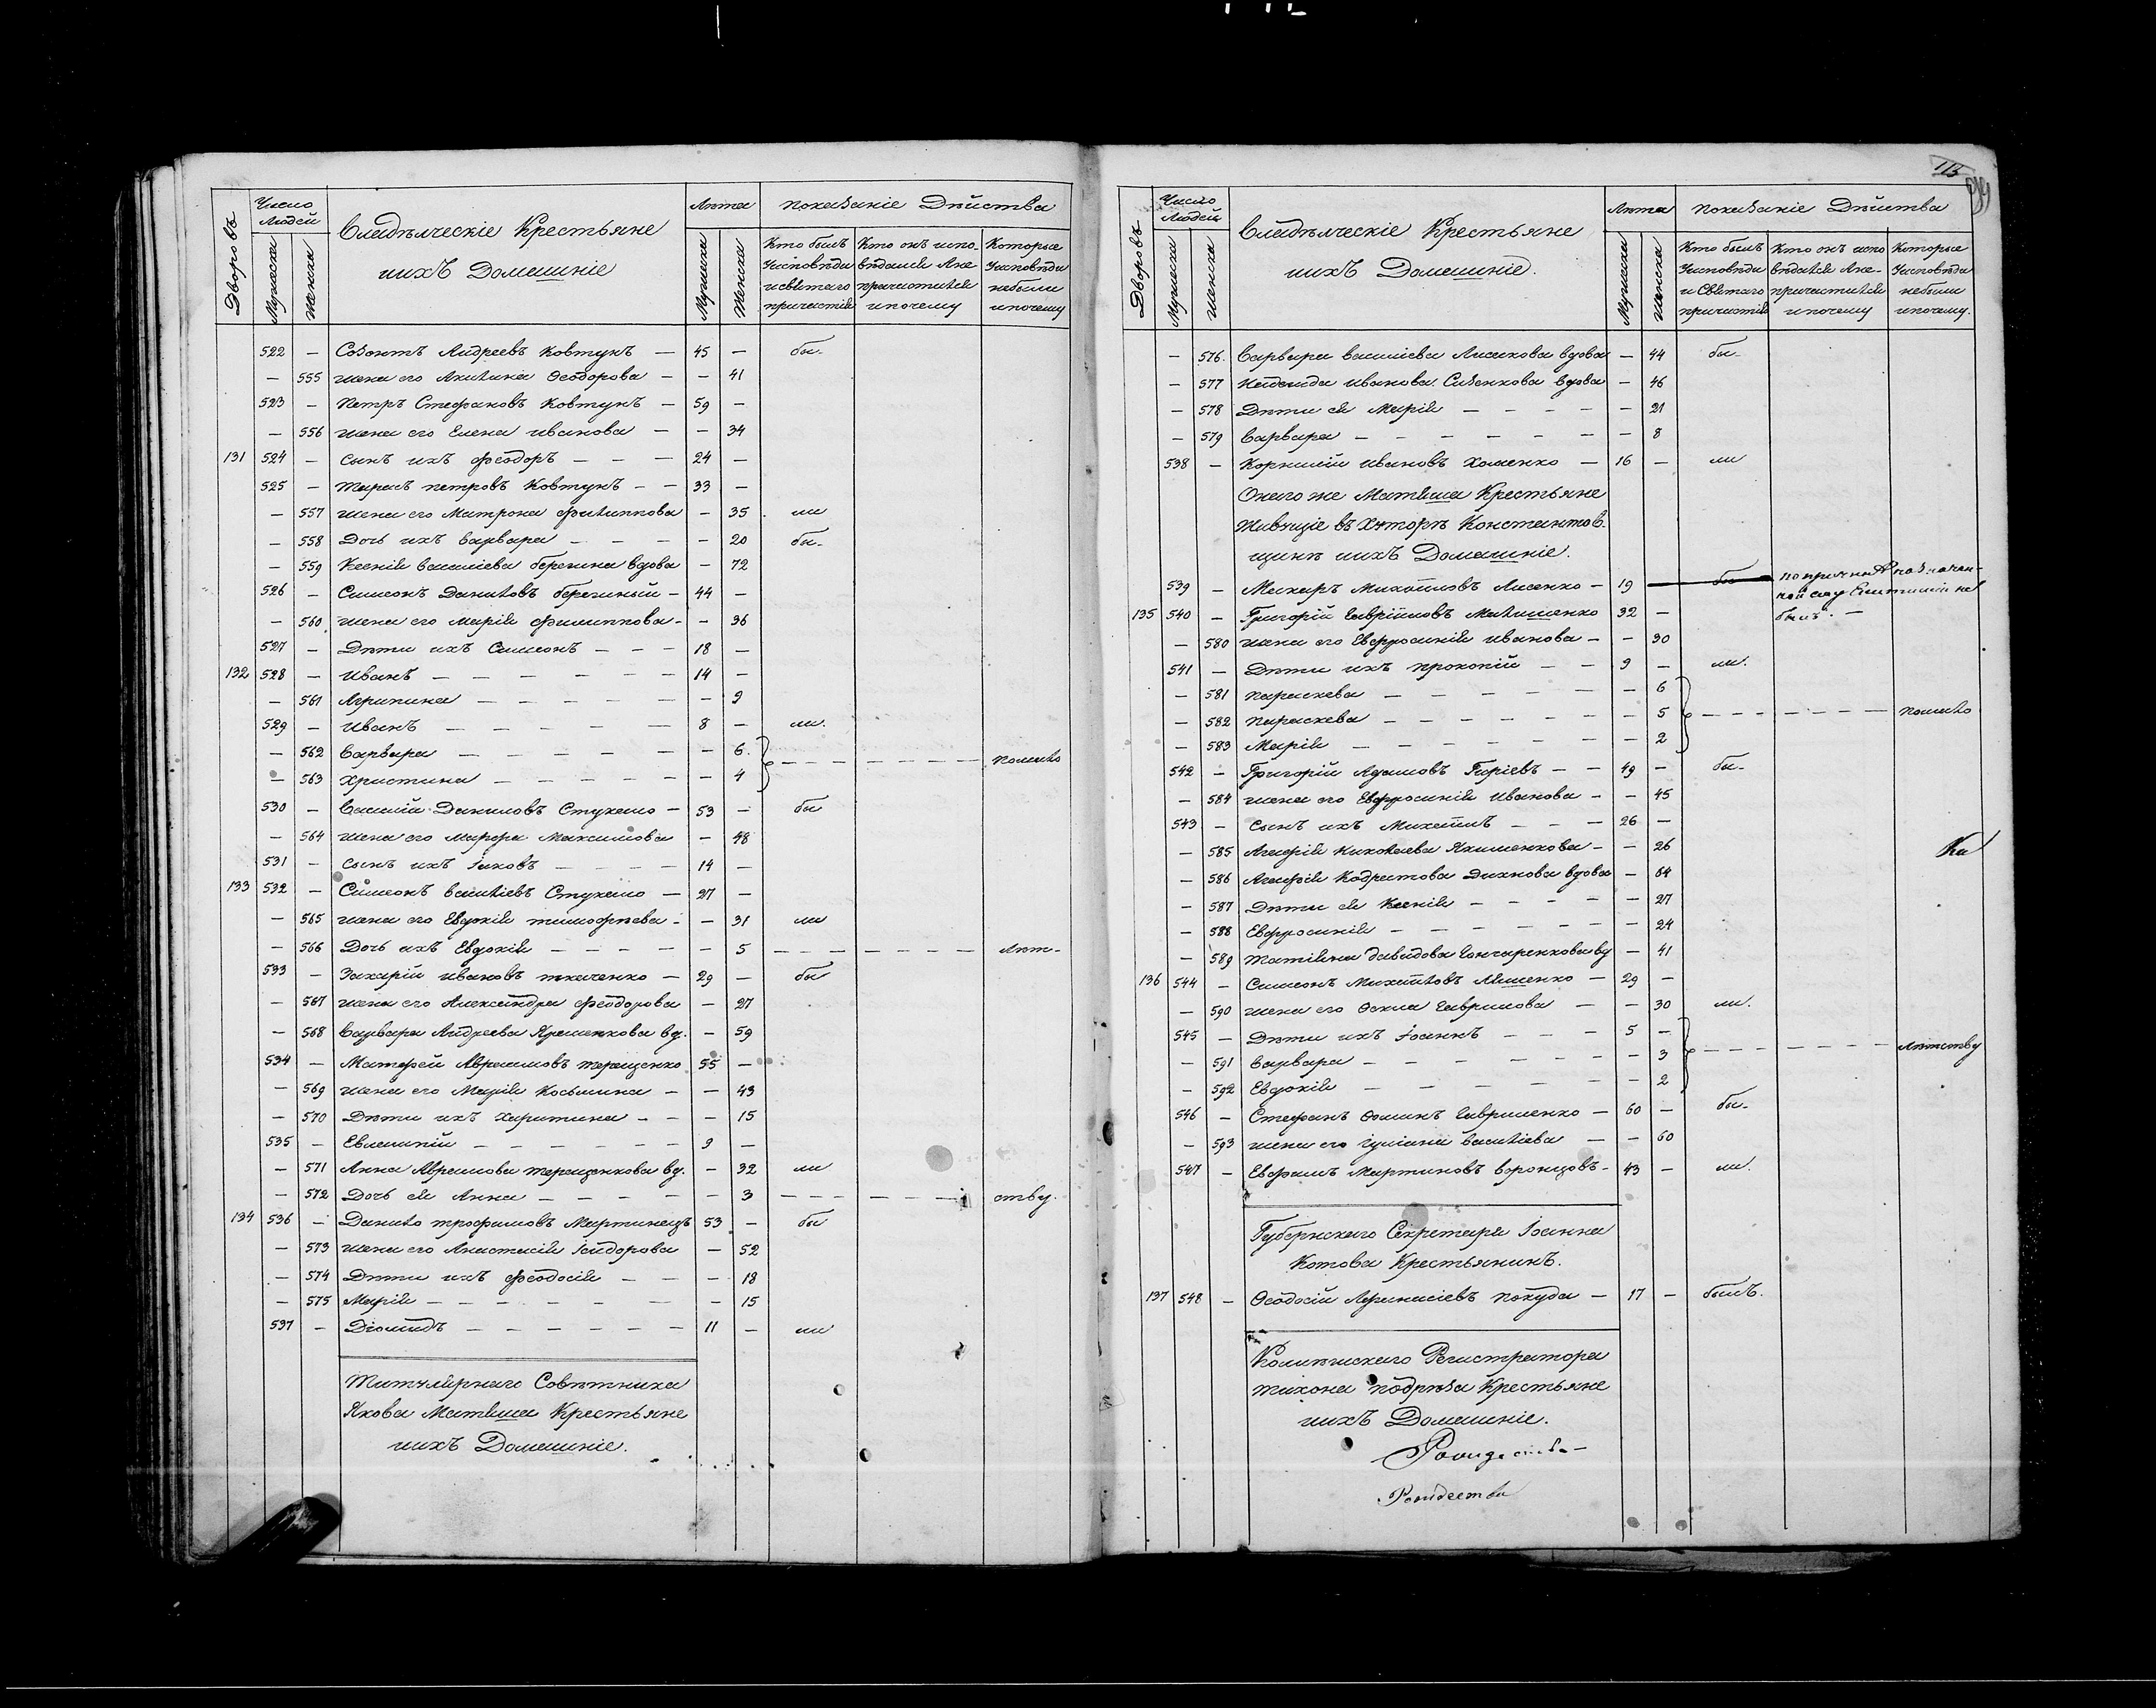 Дворовъ
Число Людей
Мужеска
Женска
Владѣлческіе Крестьяне
иихъ Домашніе
Лѣта
Мужеска
Женска
показаніе Дѣйства
Кто былъ Уисповѣди исвятаго причастія
Кто онъ испо- вѣдался Ане причастился ипочему
Которые Уисповѣди небыли ипочему
522 — Созонтъ Андреевъ Ковтунъ — 45 — бы-
— 555 жена его Акилина Ѳеодорова — — 41
523 — Петръ Стефановъ Ковтунъ — 59 —
— 556 жена его Елена иванова — — 34
131 524 — сынъ ихъ Феодоръ — — — 24 —
525 — Тарасъ петровъ Ковтунъ — — 33 —
— 557 жена его Матрона Филиппова — 35 ли
— 558 Дочь ихъ варвара — — — — 20 бы-
— 559 Ксенія василіева вдова — 72
526 — Симеонъ Даниловъ — 44 —
— 560 жена его марія филиппова — — 36
527 — Дѣти ихъ Симеонъ — — — 18 —
132 528 — иванъ — — — — — — 14 —
— 561 Агрипина — — — — — — 9
529 — иванъ — — — — — 8 — ли.
— 562 варвара — — — — — — 6
— 563 христина — — — — — — 4 — — — — — — — — помало
530 — василій Даниловъ Стукало — 53 — бы
— 564 жена его марфа максимова — 48
531 — сынъ ихъ іаковъ — — — — 14 —
133 532 — Симеонъ василіевъ Стукало — 27 —
— 565 жена его Евдокія тимофѣева — — 31 ли
— 566 Дочь ихъ Евдокія — — — — — 5 — — — — — — — лѣт-
533 — Захарій ивановъ ткаченко — 29 — бы
— 567 жена его Александра феодорова — 27
— 568 варвара Андреева вд. — 59
534 — Матфей Авраамовъ терещенко 55 —
— 569 жена его Марія Косьмина — — 43
— 570 Дѣти ихъ харитина — — — 15
535 — Евлампій — — — — — — 9 —
— 571 Анна Авраамова терещенкова вд. — 32 ли
— 572 Дочь ея Анна — — — — — 3 — — — — — — ству.
134 536 — Данило трофимовъ Мартинецъ 53 — бы
— 573 жена его Анастасія Ісидорова — 52
— 574 Дѣти ихъ феодосія — — — 18
— 575 Марія — — — — — — — 15
537 — Діомидъ — — — — — — 11 — ли
Титулярнаго Совѣтника
Якова Матяша Крестьяне
иихъ Домашніе.
113
Дворовъ
Число Людей
Мужеска
Женска
Владѣлческіе Крестьяне
иихъ Домашніе.
Лѣта
Мужеска
Женска
показаніе Дѣйства
Кто былъ Уисповѣди и Святаго причастія
Кто онъ испо вѣдался Ане- причастился ипочему
Которые Уисповѣди небыли ипочему.
— 576. варвара василіева Лисикова вдова — 44 бы-
— 577 иванова вдова — 46
— 578 Дѣти ея Марія — — — — — 21
— 579 варвара — — — — — — — 8
538 — Корнилій ивановъ хоменко — 16 — ли
Онаго же Матяша Крестьяне
Живущіе въ Хуторѣ Константов-
щинѣ иихъ Домашніе.
539 — Макаръ Михайловъ Лисенко — 19
135 540 — Григорій Гаврііловъ 32 — былъ. —
— 580 жена его Евфросинія иванова — — 30
541 — Дѣти ихъ прокопій — — 9 — ли.
— 581 параскева — — — — — — 6
— 582 параскева — — — — — — — 5 — — — — — — — помало
— 583 Марія — — — — — — — 2
542 — Григорій Адамовъ Гиріевъ — — 49 — бы-
— 584 жена его Евфросинія иванова — — 45
543 — сынъ ихъ михаилъ — — — 26 —
— 585 Агафія николаева Якименкова — — 26
Ка
— 586 Агафія Кодратова вдова — 64
— 587 Дѣти ея Ксенія — — — — — 27
— 588 Евфросинія — — — — — — 24
— 589 татіяна давидова Гончаренкова вд — 41
136 544 — Симеонъ Михайловъ — 29 —
— 590 жена его Ѳекла Гаврилова — — 30 ли.
545 — Дѣти ихъ іоаннъ — — — 5 —
— 591 варвара — — — — — — — 3 — — — — — — — лѣтству
— 592 Евдокія — — — — — — 2
546 — Стефанъ Ѳоминъ Гавриленко — 60 — бы-
— 593 жена его іуліана василіева — — 60
547 — Ефремъ Мартиновъ воронцовъ — 43 — ли.
Губернскаго Секретаря Іоанна
Котова Крестьянинъ.
137 548 — Ѳеодосій Афанасіевъ покуда — 17 — былъ.
Колѣжскаго Регистратора
тихона подрѣза Крестьяне
иихъ Домашніе.
Рождества
Рождества